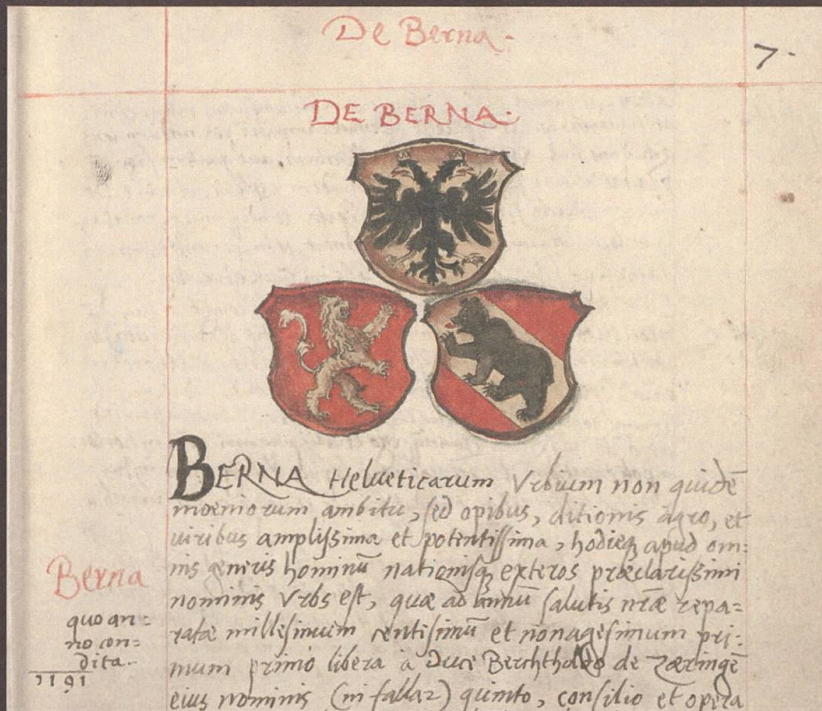 De Berna.
7.
DE BERNA.
BERNA Helueticarum Vrbium non quidē
moeniorum ambitu, sed opibus, ditionis agro, et
uiribus amplissima et potentissima, hodieq; apud om:
nis generis hominū nationisq; exteros præclarissimi
nominis Vrbs est, quæ ad annū salutis nr̄æ repa=
ratæ millesimum centesimū et nonagesimum pri:
mum primo libera à Duce Berchtholdo de Zæringē
eius nominis (ni fallar) quinto, consilio et opera
Berna
quo an=
no con=
dita.
1191